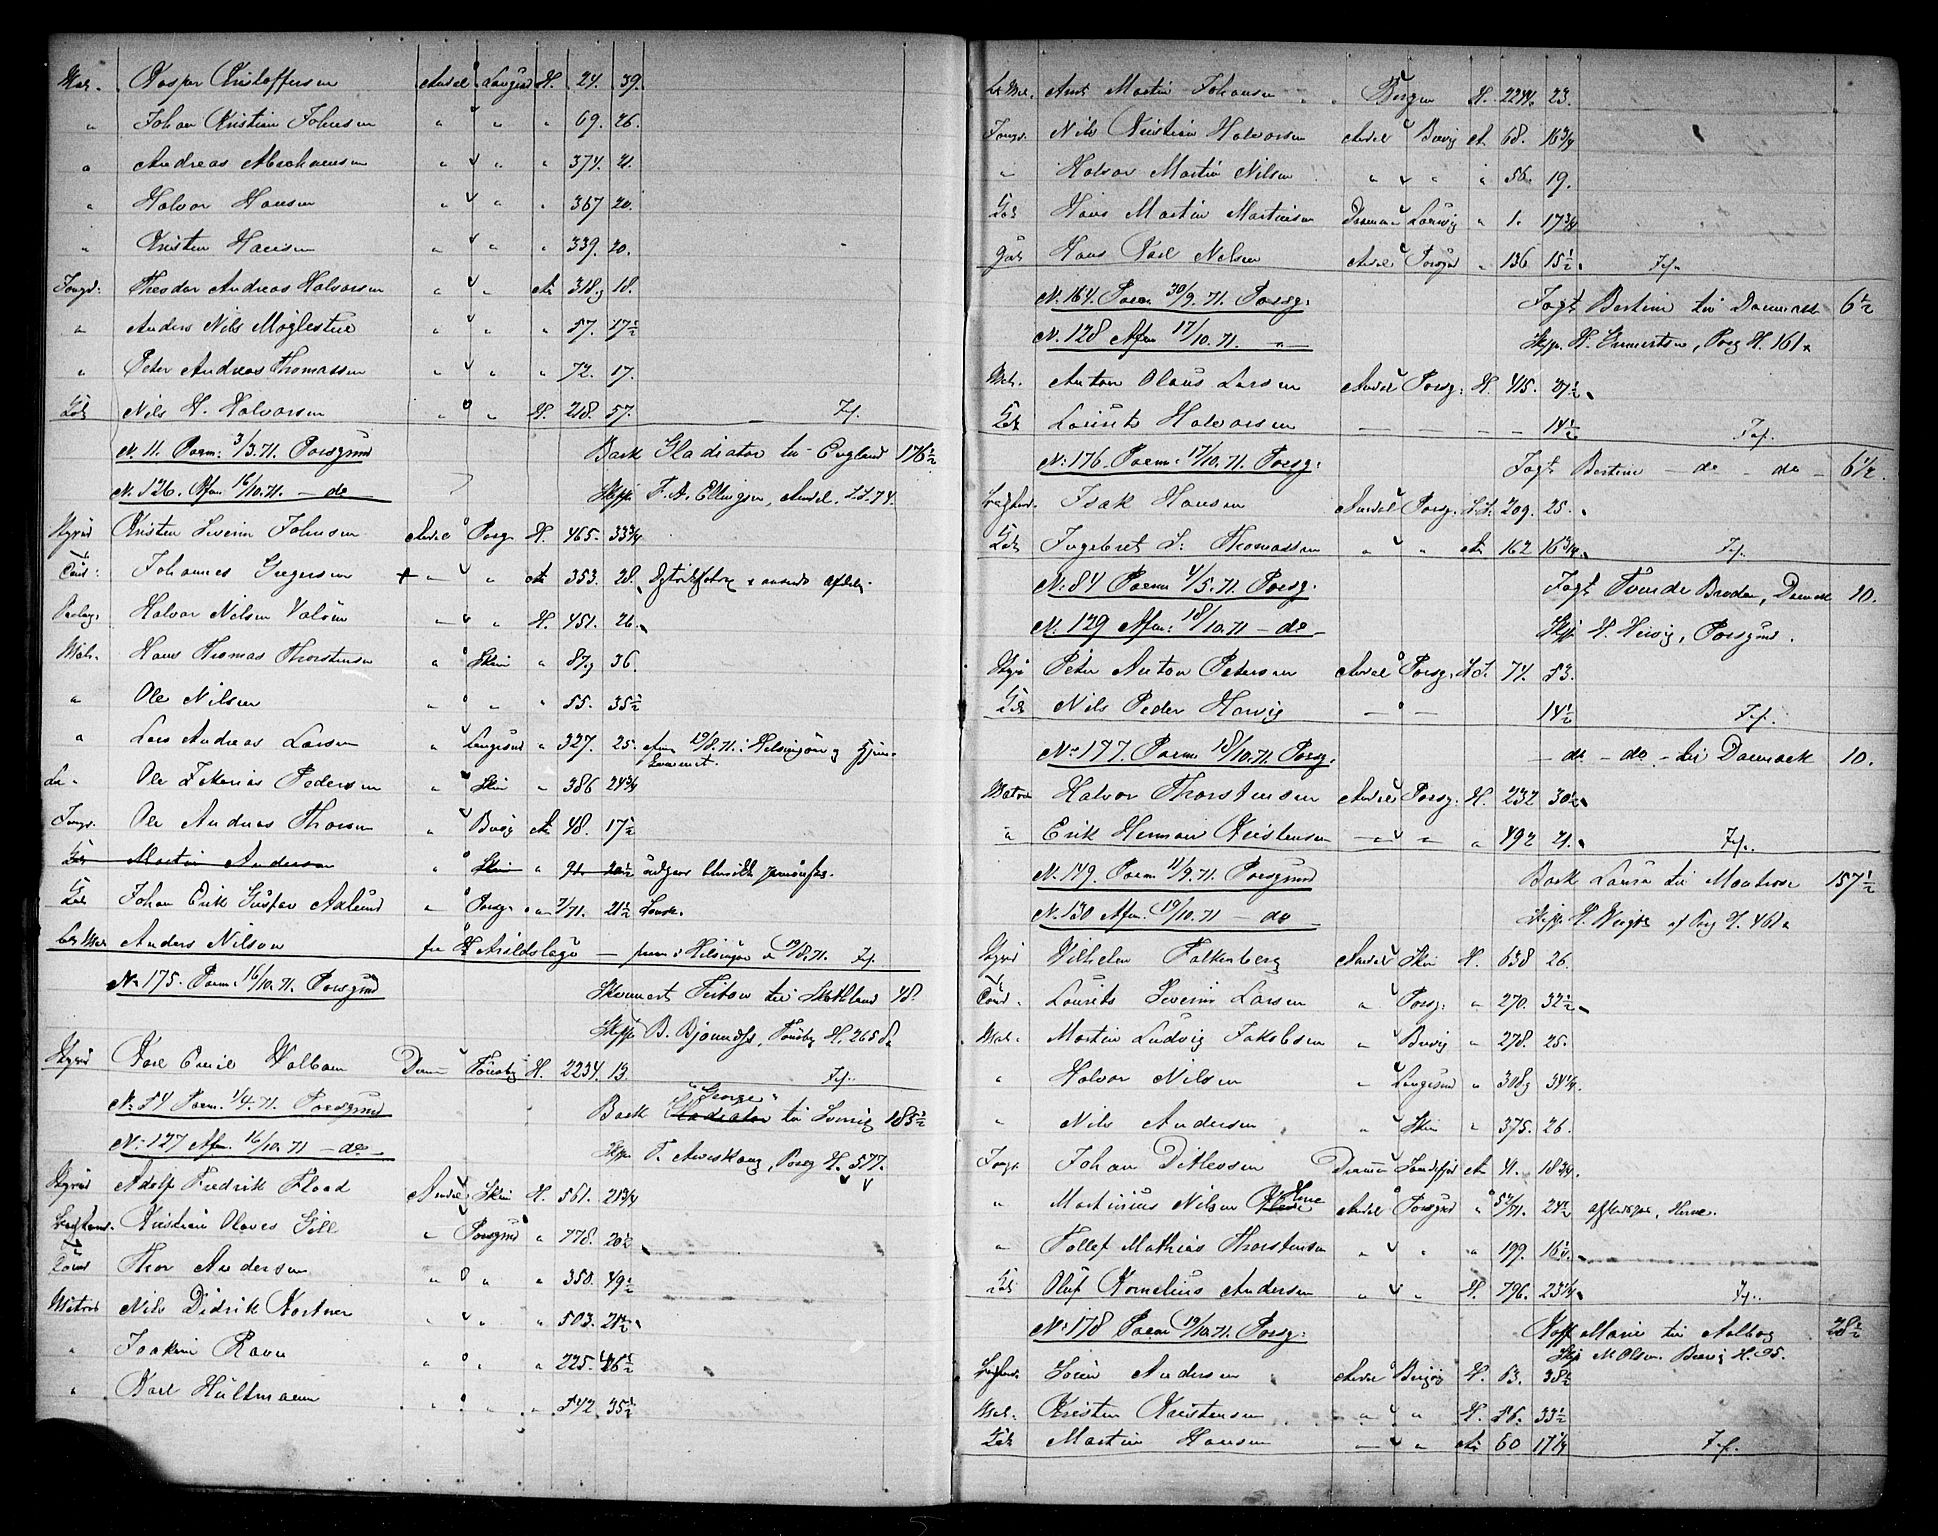 Mat. Kasper Kristoffersen Arndal Langesd H. 24. 39.
" Johan Kristian Johnsen " " " 69. 26.
" Andreas Abrahamsen " " " 374. 21.
" Halvor Hansen " " " 367 20.
" Kristen Hansen " " " 339. 20.
Jungd. Theodor Andreas Halvorsen " " A. 318 18.
" Anders Nils Møglestue " " " 57. 17½
" Peter Andreas Thomassen " " " 72. 17.
Kok Nils H. Halvorsen " " H. 218. 57. Jf.
N. 11. Paam. 3/3.71. Porsgrund Bark Gladiator til England 176½
N. 126. Afm. 16/10.71. — do — Skpr. F. A. Ellingsen, Arndal, 74.
Styrmd Kristen Severin Johnsen Arndal Porsg H. 465. 33¾
Tømd. Johannes Gregersen + " " A 353. 28.
Halvor Nilsen Valøen " " H. 451. 26.
Mat. Hans Thomas Thorstensen " Skien " 87 36.
" Ole Nilsen " " " 55. 35½
" Lars Andreas Larsen " Langesund " 327. 25. afm. 19/8.71. i Helsingør
L. " Ole Zakarias Pedersen " Skien " 386 24¾
Jungd. Ole Andreas Thorsen " Brevig A 48. 17½
Kok Martin Andersen " Skien " 91 20½
Kok Johan Erik Gustav Axlund " Porsg. " 7/71. 21½
Let Mat Anders Nilson fra Arildslage — paam. i Helsingør d. 19/8.71. Jf.
N. 175. Paam. 16/10.71. Porsgrund Skonnert Teiton til Skotland 48.
Skpr. B. Bjønness, Tønsbg H. 265
Styrmd Karl Emil Wolbom Dram Tønsbg H. 2234. 13. Jf.
N. 54 Paam. 1/4.71. Porsgrund Bark Gladiator "George" til Sverig 185½
N. 127 Afm. 16/10.71 — do — Skpr. T. Amiskaug, Porsg H. 577.
Styrmd Adolf Fredrik Flood Arndal Skien H. 561. 21¾
Kristian Olaves Gill " Porsgrund " 778. 20½
Tømd Thor Andersen " " " 350. 49½
Matros Nils Didrik Kortner " " " 503. 21½
" Joakim Ravn " " " 225. 46½
" Karl Hultmann " " " 542. 35½
Let Mat. Anth Martin Johansen Bergen H. 2244. 23.
Jungd. Nils Kristian Halvorsen Arndal Brevig A 68. 16¾
" Halvor Martin Nilsen " " " 56. 19.
Kok Hans Martin Martinsen Drammen Laurvig " 1. 17¾
Gut Hans Karl Nilsen Arndal Porsgrd " 136 15½ Jf.
N. 164. Paam 30/9.71. Porsg. Jagt Bertine til Danmark 6½
N. 128 Afm 17/10.71. " Skpr. H. Gunnertsen, Porsg H. 161
Mat. Anton Olaus Larsen Arndal Porsg. H. 415. 21½
Kok Laurits Halvorsen — — — 14½ Jf.
N. 176. Paam. 17/10.71. Porsg. Jagt Bertine — do — do — 6½
Isak Hansen Arndal Porsg. 209. 25.
Kok Ingebret L. Thomassen " " A 162 16¾ Jf.
N. 84 Paam 4/5.71. Porsg. Jagt Tvende Brødre, Danmark 10.
N. 129 Afm. 18/10.71 — do — Skpr. N. Hervig, Porsgrund.
Styrm Peter Anton Petersen Arndal Porsg. 74. 53.
Kok Nils Peder Hervig — — 14½ Jf.
N. 177. Paam. 18/10.71 Porsg. — do — do — til Danmark 10.
Matros Halvor Thorstensen Arndal Porsg. H. 232 30½
" Erik Herman Kristensen " " " 492 21. Jf.
N. 149. Paam 11/9.71. Porsgrund Bark Laura til Montrose 157½
N. 130 Afm. 19/10.71 — do — Skpr. H. Weigh af Porsg H. 461
Styrmd Vilhelm Falkenberg Arndal Skien H. 638 26.
Tømd. Laurits Severin Larsen " Porsg. " 270. 32½
Mat. Martin Ludvig Jakobsen " Brevig " 278. 25.
" Halvor Nilsen " Langesund " 308 34¼
" Nils Andersen " Skien " 375. 26.
Jungd Johan Ditlessen Drammen Sandefjord A 41. 18¾
" Martinius Nilsen Herre Arndal Porsgrund " 54/71. 24½
" Tollef Mathias Thorstensen " " " 199. 16½
Kok Oluf Kornelius Andersen " " H. 796. 23¼ Jf.
N. 178 Paam 19/10.71. Porsg. Koff Marie til Aalborg 28½
Skpr M. Olsen Brevig H. 95.
Søren Andersen Arndal Brevig H. 63. 38½
Mat. Kristen Kristensen " " H. 56. 33½
Kok Martin Hansen — " A. 60 17¼ Jf.